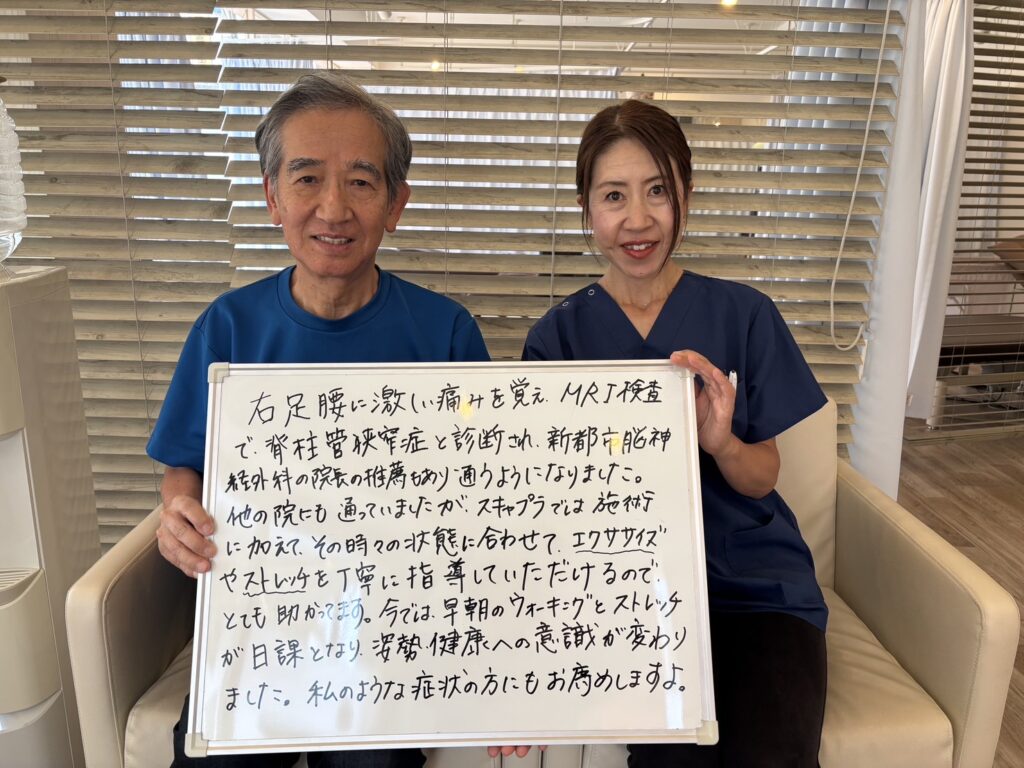 右足腰に激しい痛みを覚え、MRI検査
で、脊柱管狭窄症と診断され、新都市脳神
経外科の院長の推薦もあり通うようになりました。
他の院にも通っていましたが、スキャプラでは施術
に加えて、その時々の状態に合わせて、エクササイズ
やストレッチを丁寧に指導していただけるので、
とても助かってます。今では、早朝のウォーキングとストレッチ
が日課となり、姿勢・健康への意識が変わり
ました。私のような症状の方にもお薦めしますよ。